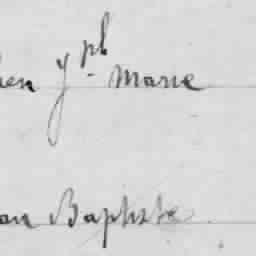 yph Marie
an Baptiste